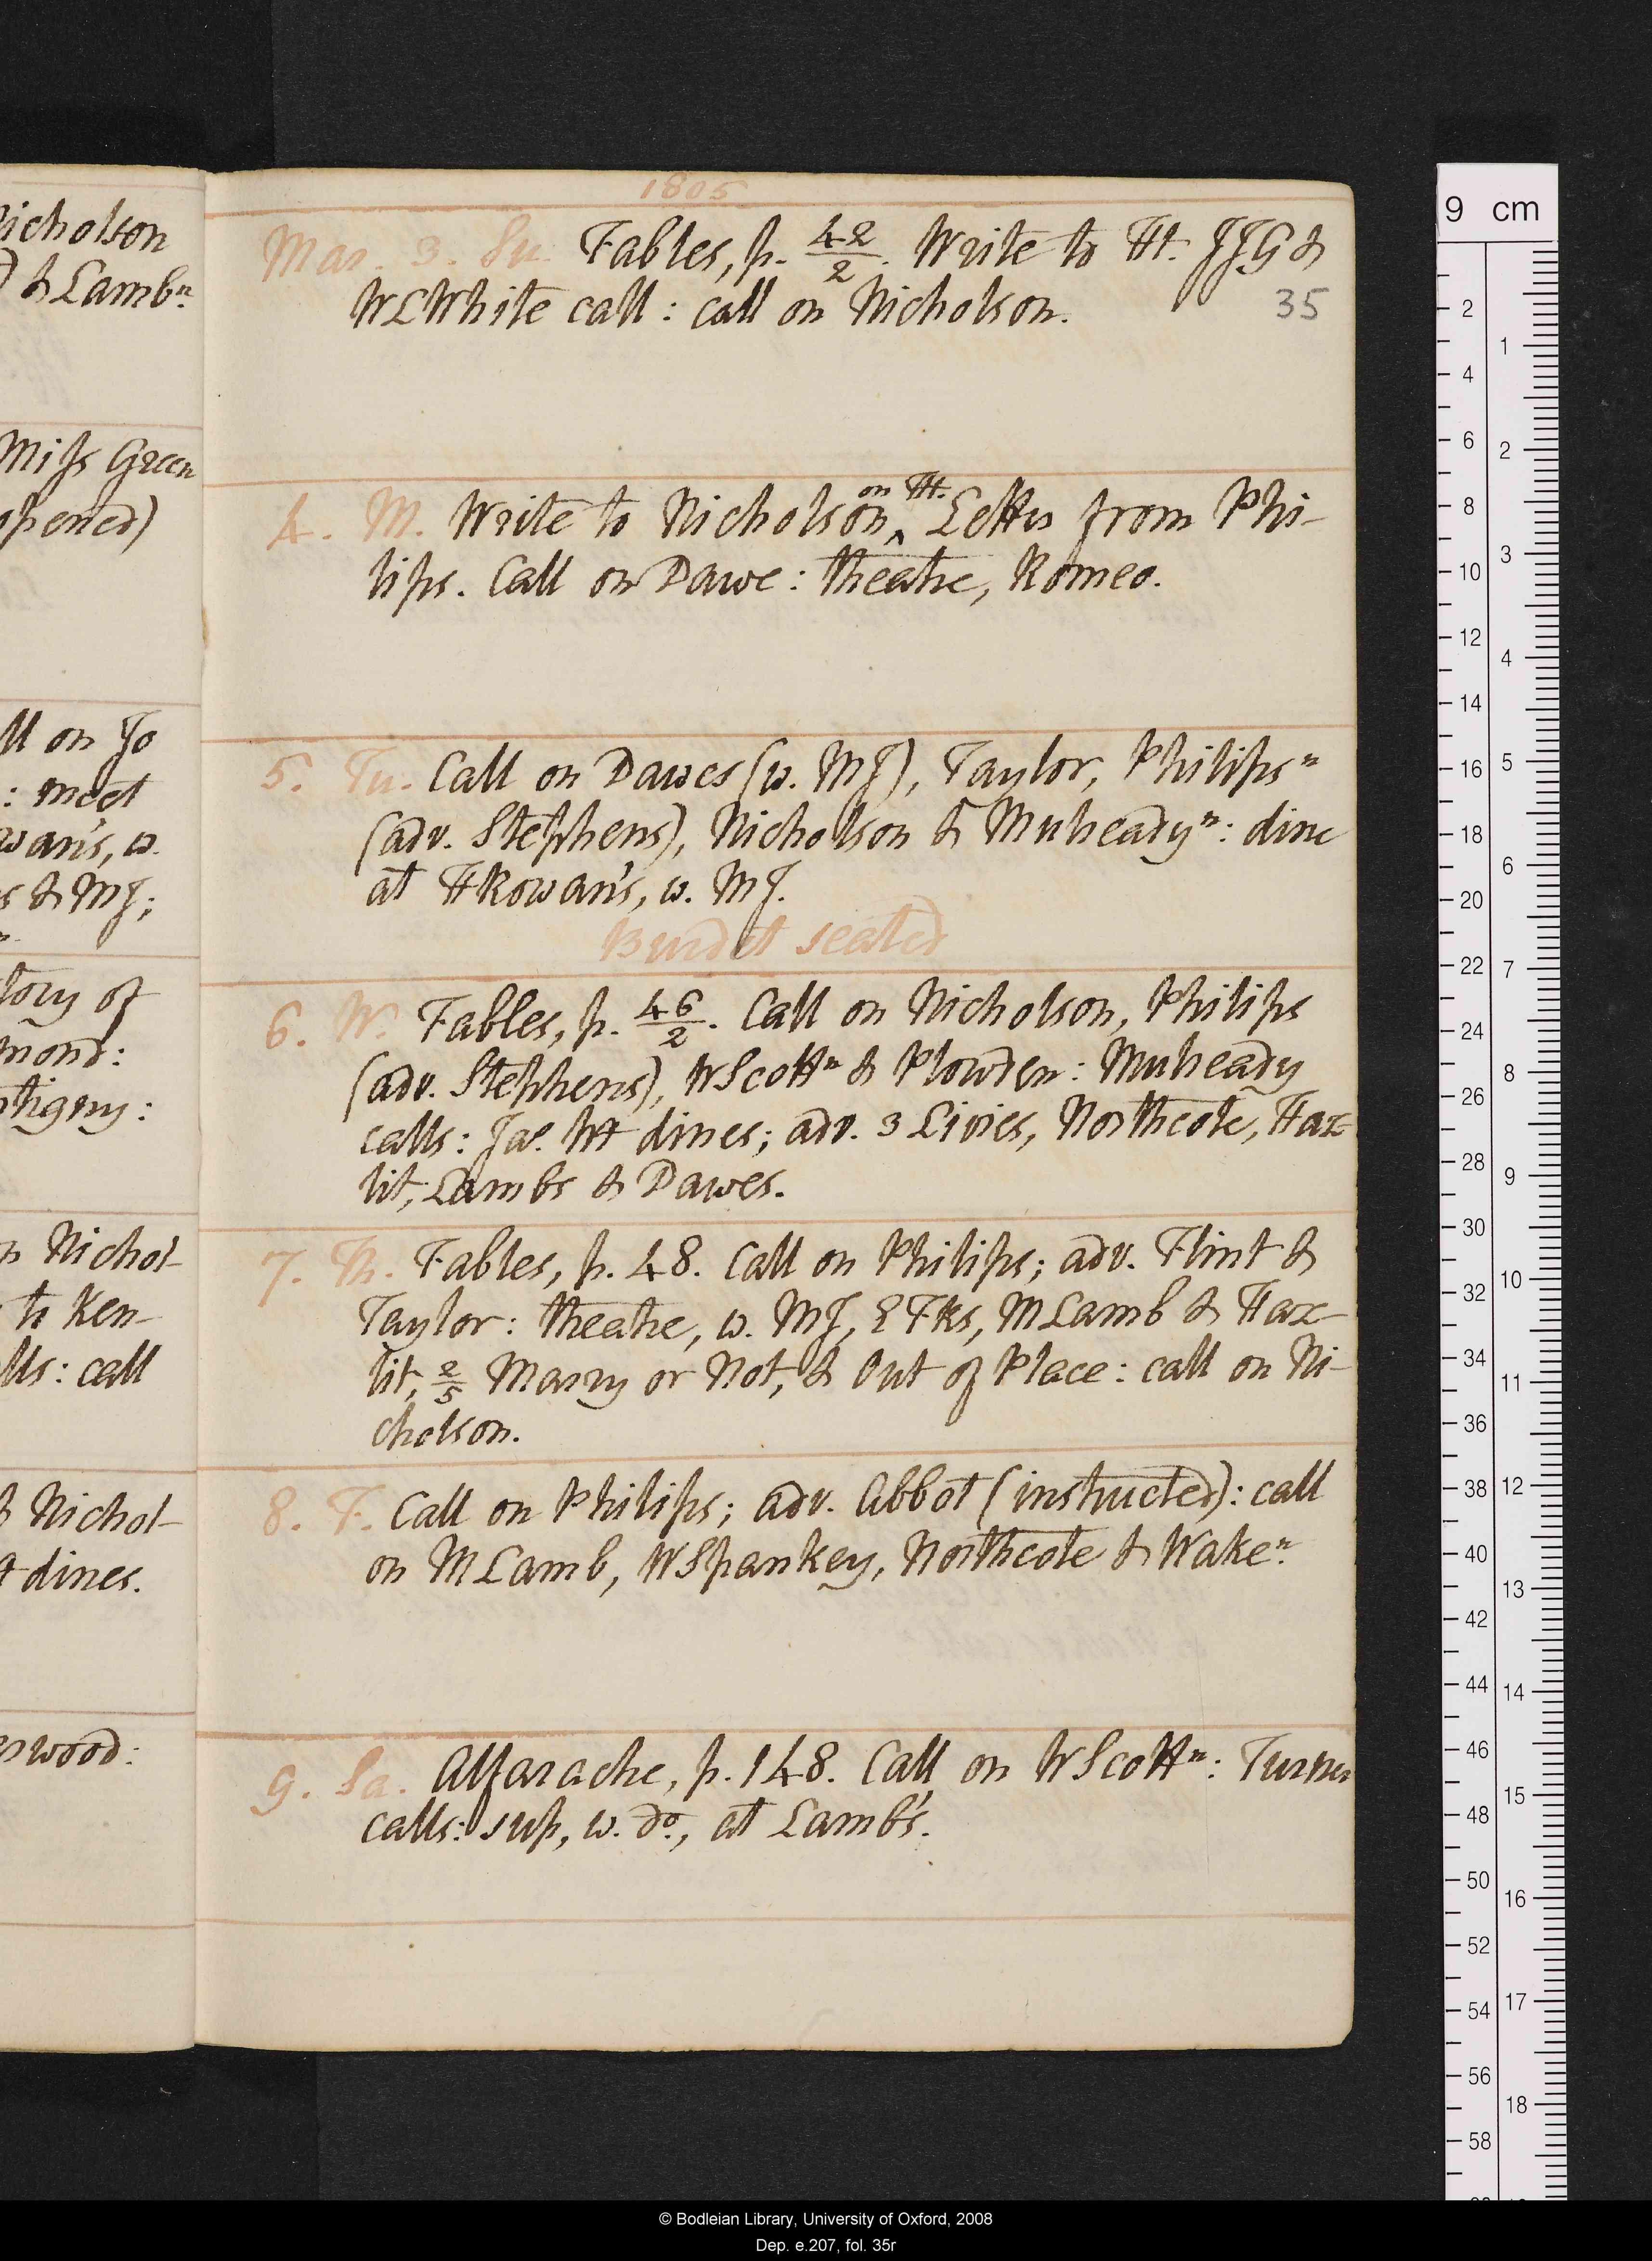 1805
Mar. 3. Su. Fables, p. 42/2. Write to Ht. JJG &
WLWhite call: call on Nicholson.
35
4. M. Write to Nicholson ^ on Ht. Letter from Phi-
lips. Call on Dawe: theatre, Romeo.
5. Tu. Call on Dawes (w. MJ), Taylor, Philips n
(adv. Stephens), Nicholson & Muheady n: dine
at HRowan's, w. MJ.
Burdet seated
6. W. Fables, p. 46/2. Call on Nicholson, Philips
(adv. Stephens), WScott n & Plowden: Muheady
calls: Jas. Ht dines; adv. 3 Livies, Northcote, Haz-
lit, Lambs & Dawes.
7. Th. Fables, p. 48. Call on Philips; adv. Flint &
Taylor: theatre, w. MJ, EFks, MLamb & Haz-
lit, 2/5 Marry or Not, & Out of Place: call on Ni-
cholson.
8. F. Call on Philips; adv. Abbot (instructed): call
on MLamb, WSpankey, Northcote & Wake n.
9. Sa. Alfarache, p. 148. Call on WScott n: Turner
calls: sup, w. do., at Lamb's.
icholson
& Lamb n.
Miss Green
opened)
ll on Jo
: meet
wan's, w.
s & MJ;
tory of
mond:
ntigny:
n Nichol-
to Ken-
lls: call
& Nichol-
t dines.
nwood:
9 cm
2
4
6
8
10
12
14
16
18
20
22
24
26
28
30
32
34
36
38
40
42
44
46
48
50
52
54
56
58
1
2
3
4
5
6
7
8
9
10
11
12
13
14
15
16
17
18
© Bodleian Library, University of Oxford, 2008
Dep. e.207, fol. 35r